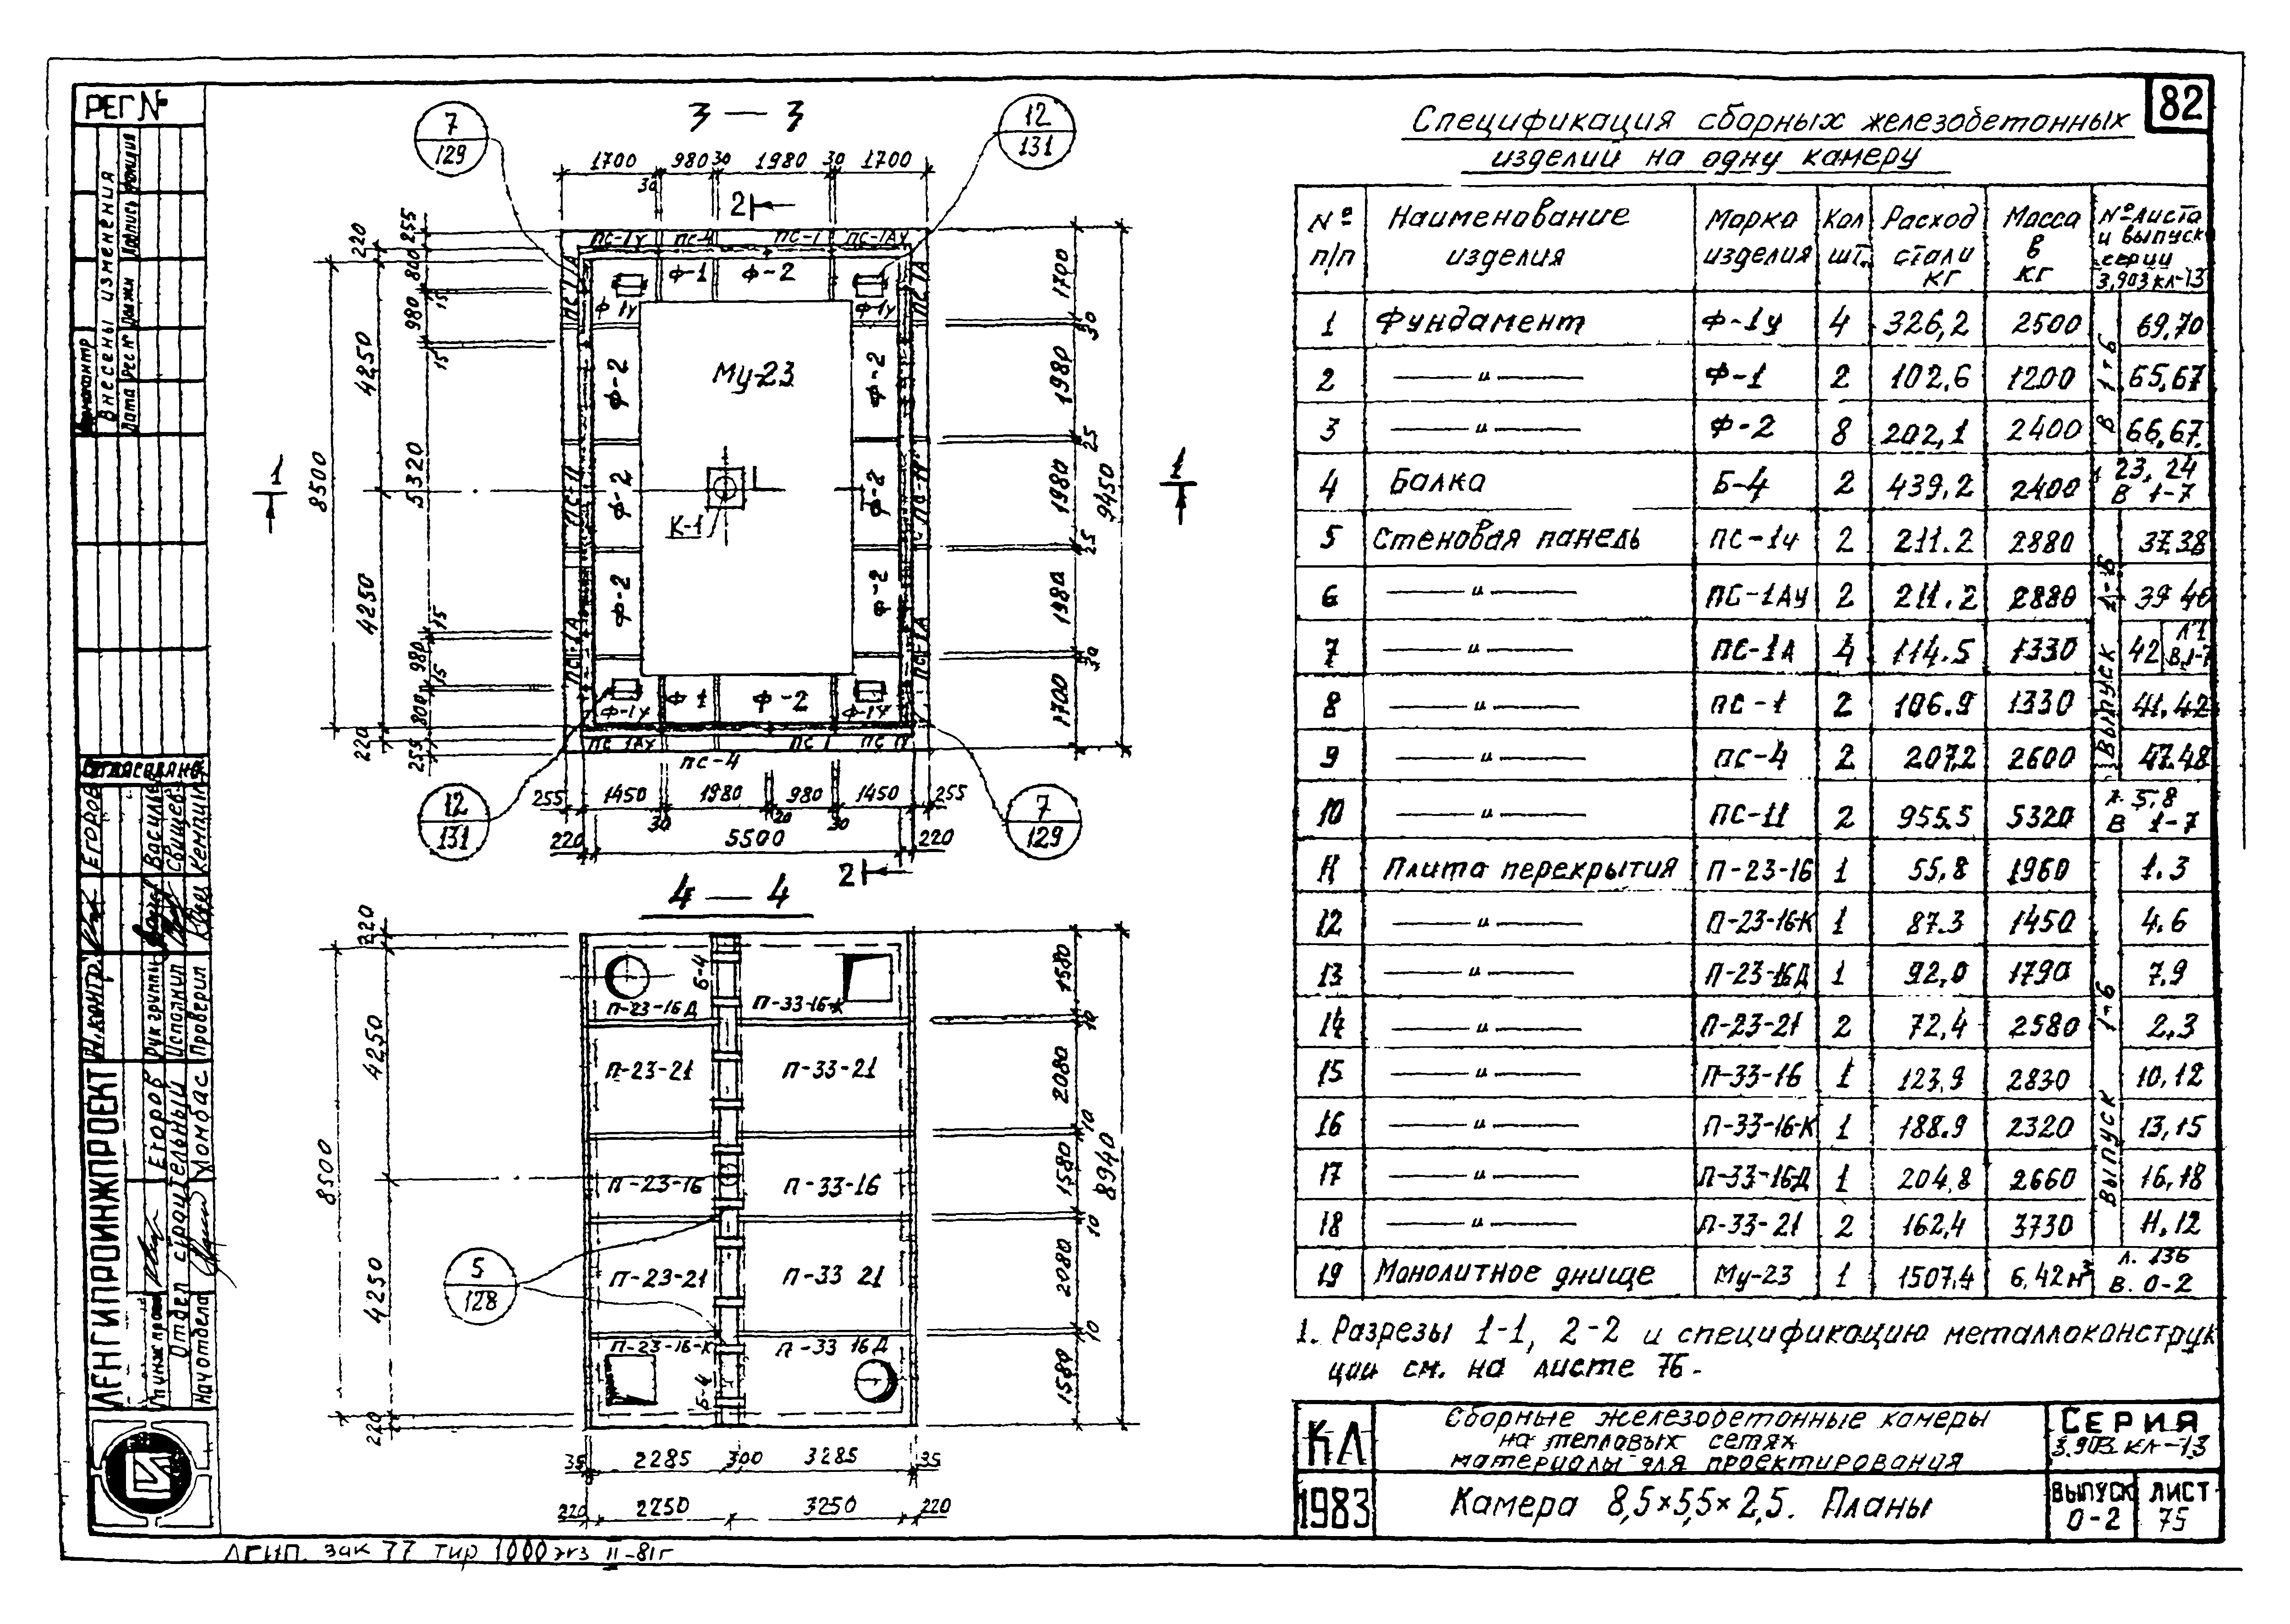 82
РЕГ №
внесены изменения
Дата
Рег №
Подпись
3 — 3
7
129
12
131
1700 980 30 1980 30 1700
30
2
220 255
800
980
15
15
4250
8500
5320
4250
980
15
15
800
220
255
ПС-1У ПС-4 ПС-1 ПС-1АУ
Ф-1 Ф-2
Ф-1У Ф-1У
ПС-1А
Ф-2
Ф-2
Му-23
Ф-2
Ф-2
К-1
ПС-11
Ф-2
Ф-2
ПС-1А
ПС-1А
Ф-1У Ф-1 Ф-2 Ф-1У
ПС-1АУ ПС-1
ПС-4
1
1
1700
30
1980
25
1980
25
1980
30
1700
9450
255 1450 1980 980 1450 255
30 20 30
220 5500 220
12
131
7
129
2
4 — 4
220
4250
8500
4250
220
Б-4
П-23-16Д П-33-16-К
П-23-21 П-33-21
П-23-16 П-33-16
П-23-21 П-33 21
П-23-16-К П-33 16Д
Б-4
5
128
1580
10
2080
10
1580
10
2080
10
1580
8940
35 2285 300 3285 35
220 2250 3250 220
Спецификация сборных железобетонных
изделий на одну камеру
№ п/п Наименование изделия Марка изделия Кол шт. Расход стали кг Масса в кг № листа и выпуск серии 3.903 кл-13
1 Фундамент Ф-1у 4 326,2 2500 69,70
2 — " — Ф-1 2 102,6 1200 65,67
3 — " — Ф-2 8 202,1 2400 66,67
В 1-6
4 Балка Б-4 2 439,2 2400 23, 24 В 1-7
5 Стеновая панель ПС-1у 2 211.2 2880 37.38
6 — " — ПС-1АУ 2 211.2 2880 39 40
7 — " — ПС-1А 4 114.5 1330 42 Л 1 В.1-7
8 — " — ПС-1 2 106.9 1330 41.42
9 — " — ПС-4 2 207.2 2600 47.48
Выпуск 1-6
10 — " — ПС-11 2 955.5 5320 л. 5,8 В 1-7
11 Плита перекрытия П-23-16 1 55,8 1960 1.3
12 — " — П-23-16-К 1 87.3 1450 4.6
13 — " — П-23-16Д 1 92,0 1790 7.9
14 — " — П-23-21 2 72,4 2580 2.3
15 — " — П-33-16 1 123,9 2830 10,12
16 — " — П-33-16-К 1 188.9 2320 13,15
17 — " — П-33-16Д 1 204,8 2660 16,18
18 — " — П-33-21 2 162,4 3730 11.12
Выпуск 1-6
19 Монолитное днище Му-23 1 1507,4 6,42м³ л. 136 В. 0-2
1. Разрезы 1-1, 2-2 и спецификацию металлоконструк
ции см. на листе 76.
КЛ
1983
Сборные железобетонные камеры
на тепловых сетях
материалы для проектирования
Серия
3.903 кл-13
Камера 8,5×5,5×2,5. Планы
выпуск
0-2
лист
75
Согласовано
Н.контр. Егоров
Рук группы
Исполнил
Проверил
ЛЕНГИПРОИНЖПРОЕКТ
Егоров
Отдел строительный
Нач отдела
ЛГИП. зак 77 тир 1000 экз II-81г